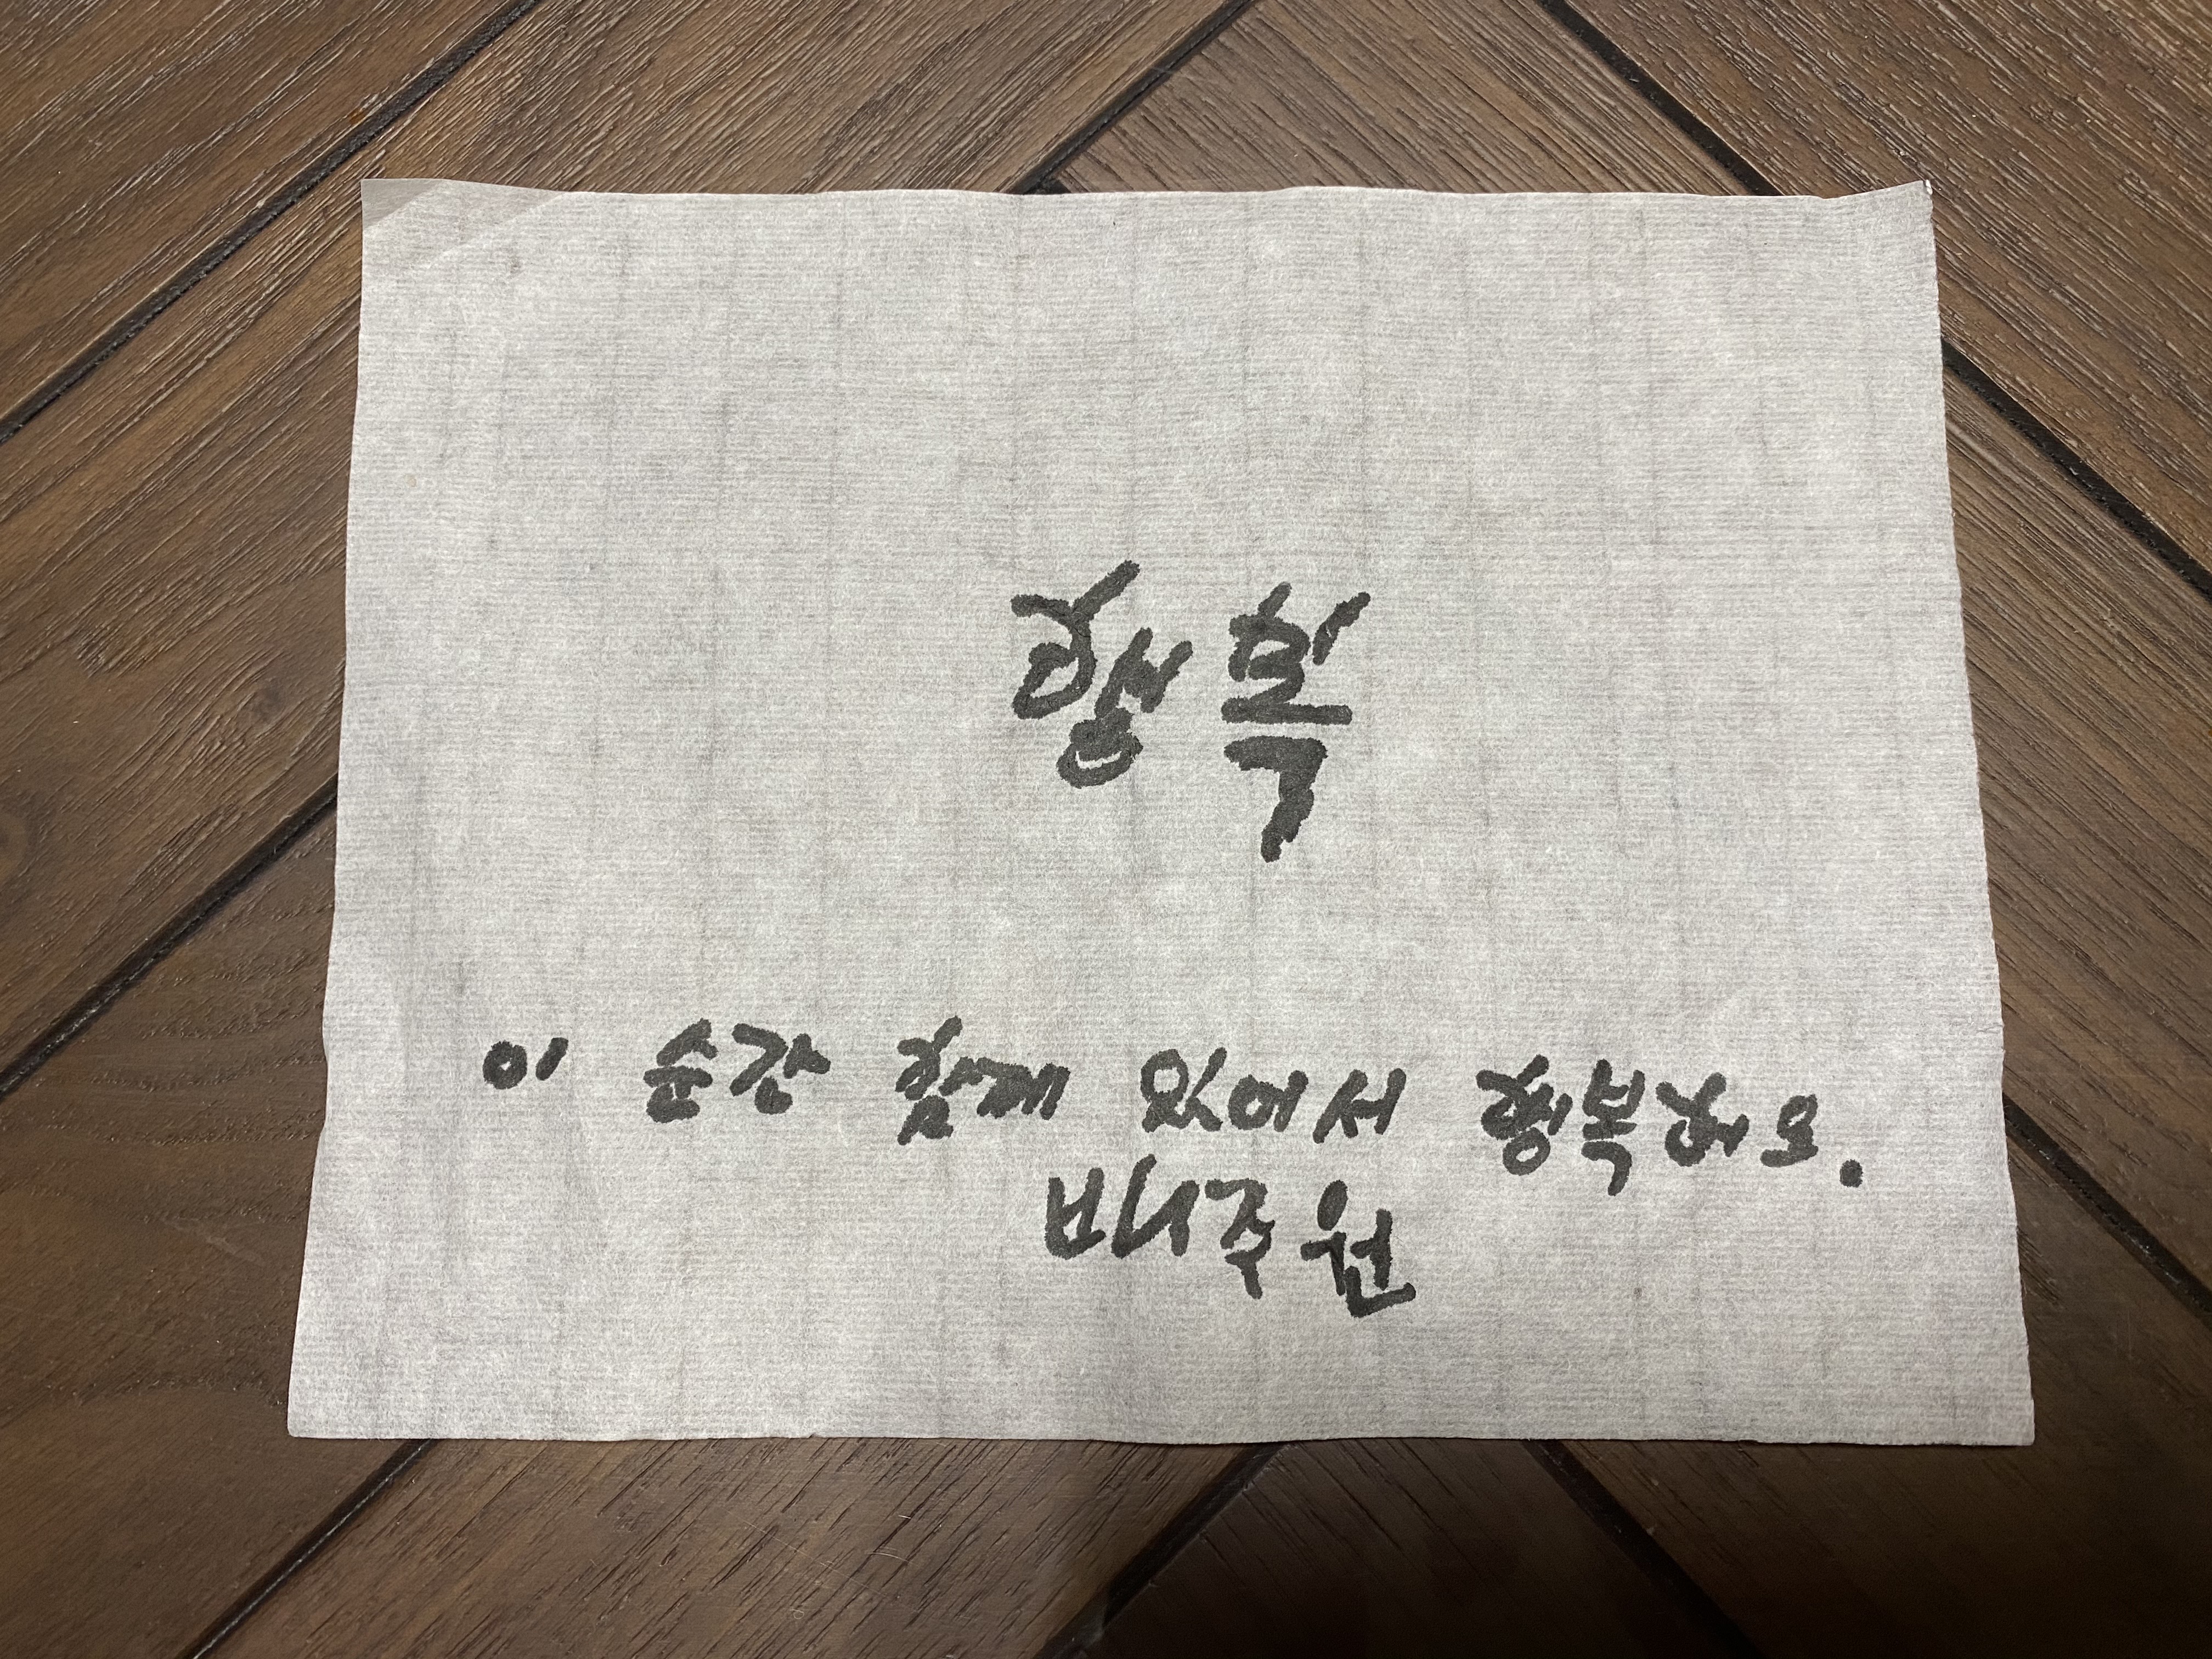 행복
이 순간 함께 있어서 행복해요.
박주원